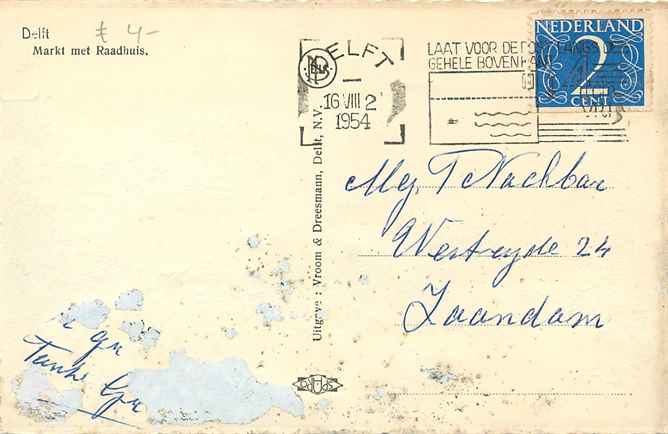 Delft
Markt met Raadhuis.
£ 4-
DELFT
16 VIII 2
1954
LAAT VOOR DE
GEHELE BOVEN
NEDERLAND
2
CENT
Uitgave : Vroom & Dreesmann, Delft, N.V.
Mej. T Nachbar
Westzijde 24
Zaandam
Tante